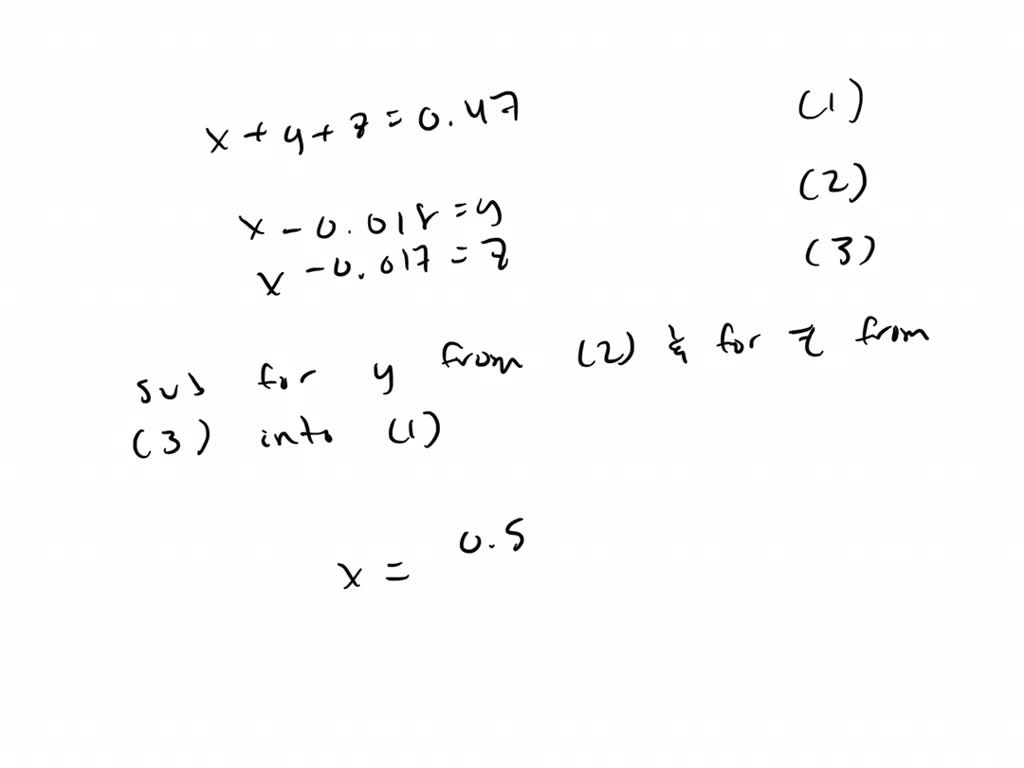 x + y + z = 0.47 (1)
x - 0.018 = y (2)
x - 0.017 = z (3)
sub for y from (2) & for z from
(3) into (1)
x = 0.5